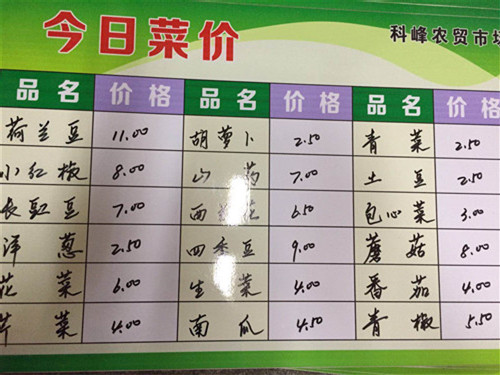 今日菜价
科峰农贸市场
品名 价格 品名 价格 品名 价格
荷兰豆 11.00 胡萝卜 2.50 青菜 2.50
小红椒 8.00 山药 7.00 土豆 2.50
长豇豆 7.00 西兰花 6.50 包心菜 3.00
洋葱 2.50 四季豆 9.00 蘑菇 8.00
花菜 6.00 生菜 4.00 番茄 4.00
芹菜 4.00 南瓜 4.50 青椒 5.50